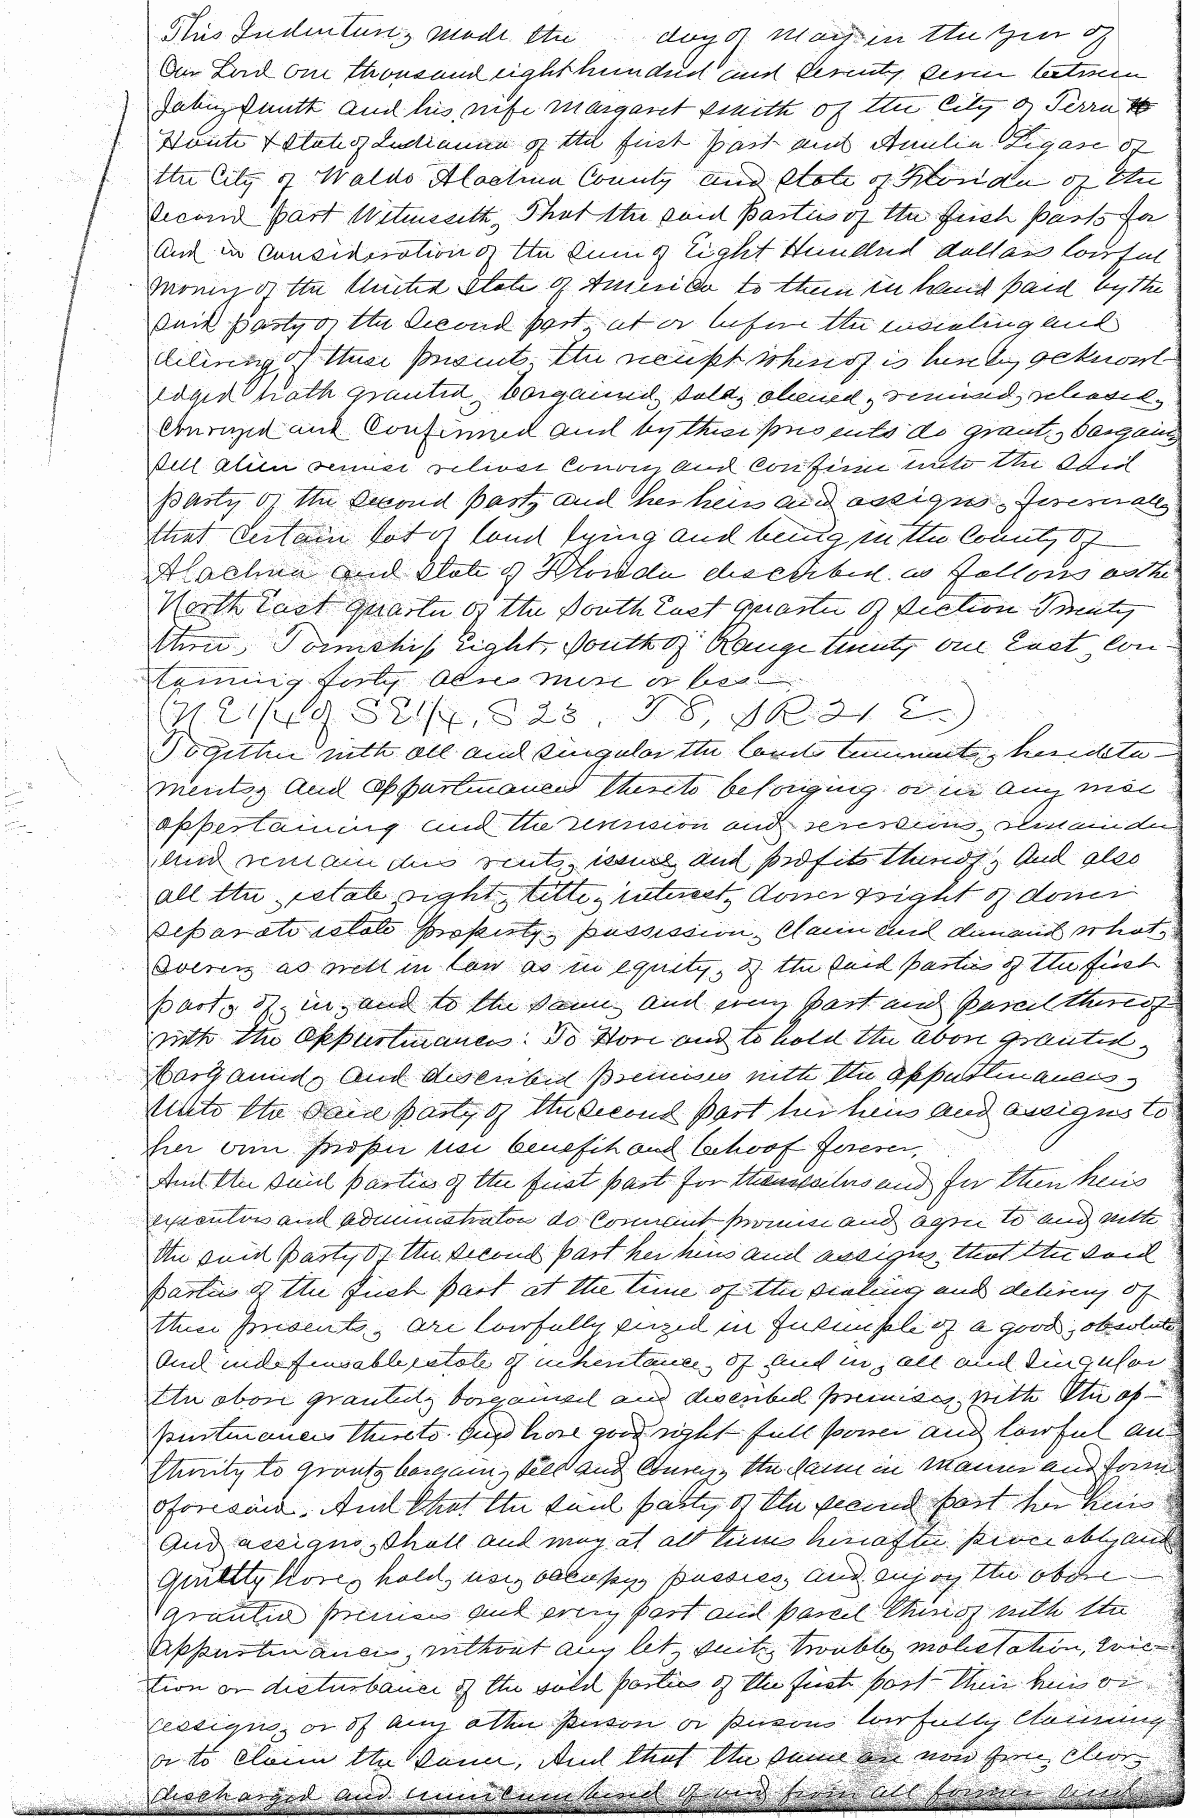 This Indenture, made the day of May in the Year of
Our Lord one thousand eight hundred and seventy seven between
Jabez Smith and his wife Margaret Smith of the City of Terra
Haute & State of Indianna of the first part and Amelia Ligare of
the City of Waldo Alachua County and State of Florida of the
second part Witnesseth, That the said parties of the first part, for
and in consideration of the sum of Eight Hundred dollars lawful
money of the United State of America to them in hand paid by the
said party of the second part, at or before the ensealing and
delivery of these presents, the receipt whereof is hereby acknowl-
edged hath granted, bargained, sold, aliened, remised, released,
Conveyed and Confirmed and by these presents do grant, bargain,
sell alien remise release convey and confirm unto the said
party of the second part, and her heirs and assigns, forever all
that certain lot of land lying and being in the County of
Alachua and State of Florida described as follows as the
North East quarter of the South East quarter of section Twenty
three, Township Eight, South of Range twenty one East, con-
taining forty acres more or less
(N E 1/4 of S E 1/4, S 23, T 8, S R 21 E.)
Together with all and singular the lands tenements, heredita-
ments, and appurtinances thereto belonging or in any wise
appertaining and the reversion and reversions, remainder
and remainders rents, issues and profits thereof, And also
all the estate, right, title, interest, dower & right of dower
separate estate property, possession, claim and demand what-
soever, as well in law as in equity, of the said parties of the first
part, of, in, and to the same, and every part and parcel thereof
with the appurtinances: To Have and to hold the above granted,
bargained, and described premises with the appurtinances,
Unto the said party of the second part her heirs and assigns to
her own proper use benefit and behoof forever,
And the said parties of the first part for themselves and for their heirs
executors and administrators do covenant promise and agree to and with
the said party of the second part her heirs and assigns, that the said
parties of the first part at the time of the sealing and delivery of
these presents, are lawfully seized in fee simple of a good, absolute
and indefeasable estate of inheritance, of and in, all and singular
the above granted, bargained and described premises, with the ap-
purtinances thereto and have good right full power and lawful au-
thority to grant, bargain, sell and convey, the same in manner and form
aforesaid. And that the said party of the second part her heirs
and assigns, shall and may at all times hereafter peaceably and
quietly have, hold, use, occupy, possess, and enjoy the above
granted premises and every part and parcel thereof with the
appurtinances, without any let, suit, trouble, molestation, evic-
tion or disturbance of the said parties of the first part their heirs or
assigns, or of any other person or persons lawfully claiming
or to claim the same, And that the same are now free, clear,
discharged and unincumbered of and from all former and